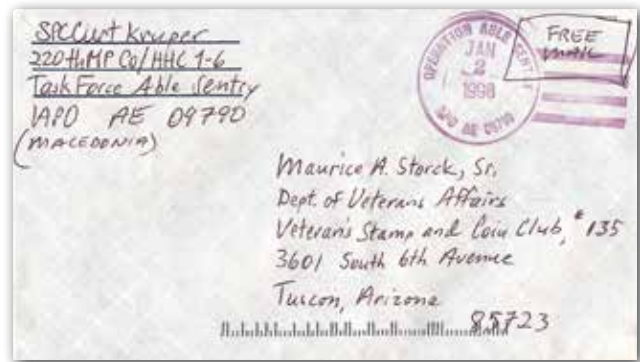 SPC Curt Kruper
220th MP Co/HHC 1-6
Task Force Able Sentry
APO AE 09790
(MACEDONIA)
OPERATION ABLE SENTRY
JAN
2
1998
APO AE 09790
FREE
MAIL
Maurice A. Storck, Sr.
Dept. of Veterans Affairs
Veteran's Stamp and Coin Club, #135
3601 South 6th Avenue
Tuscon, Arizona
85723